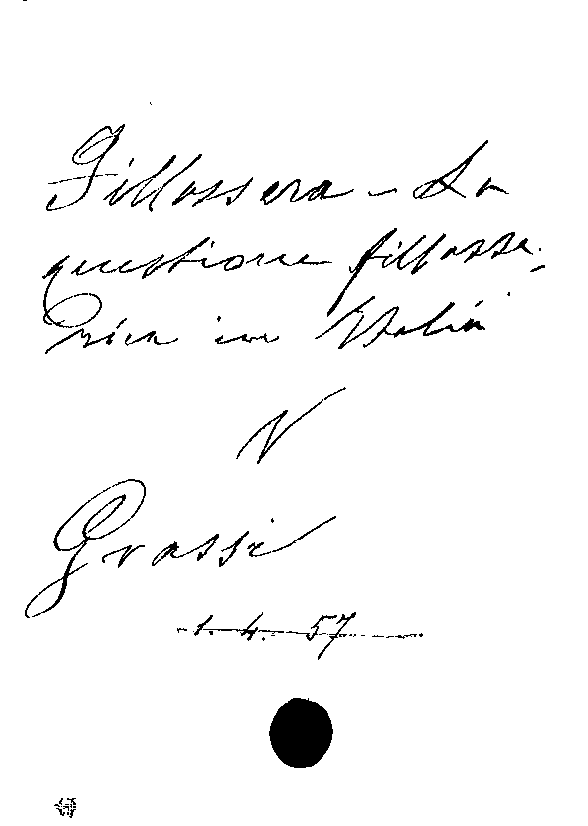 Fillossera - La
questione fillosse-
rica in Italia
V
Grassi
1. 4. 57